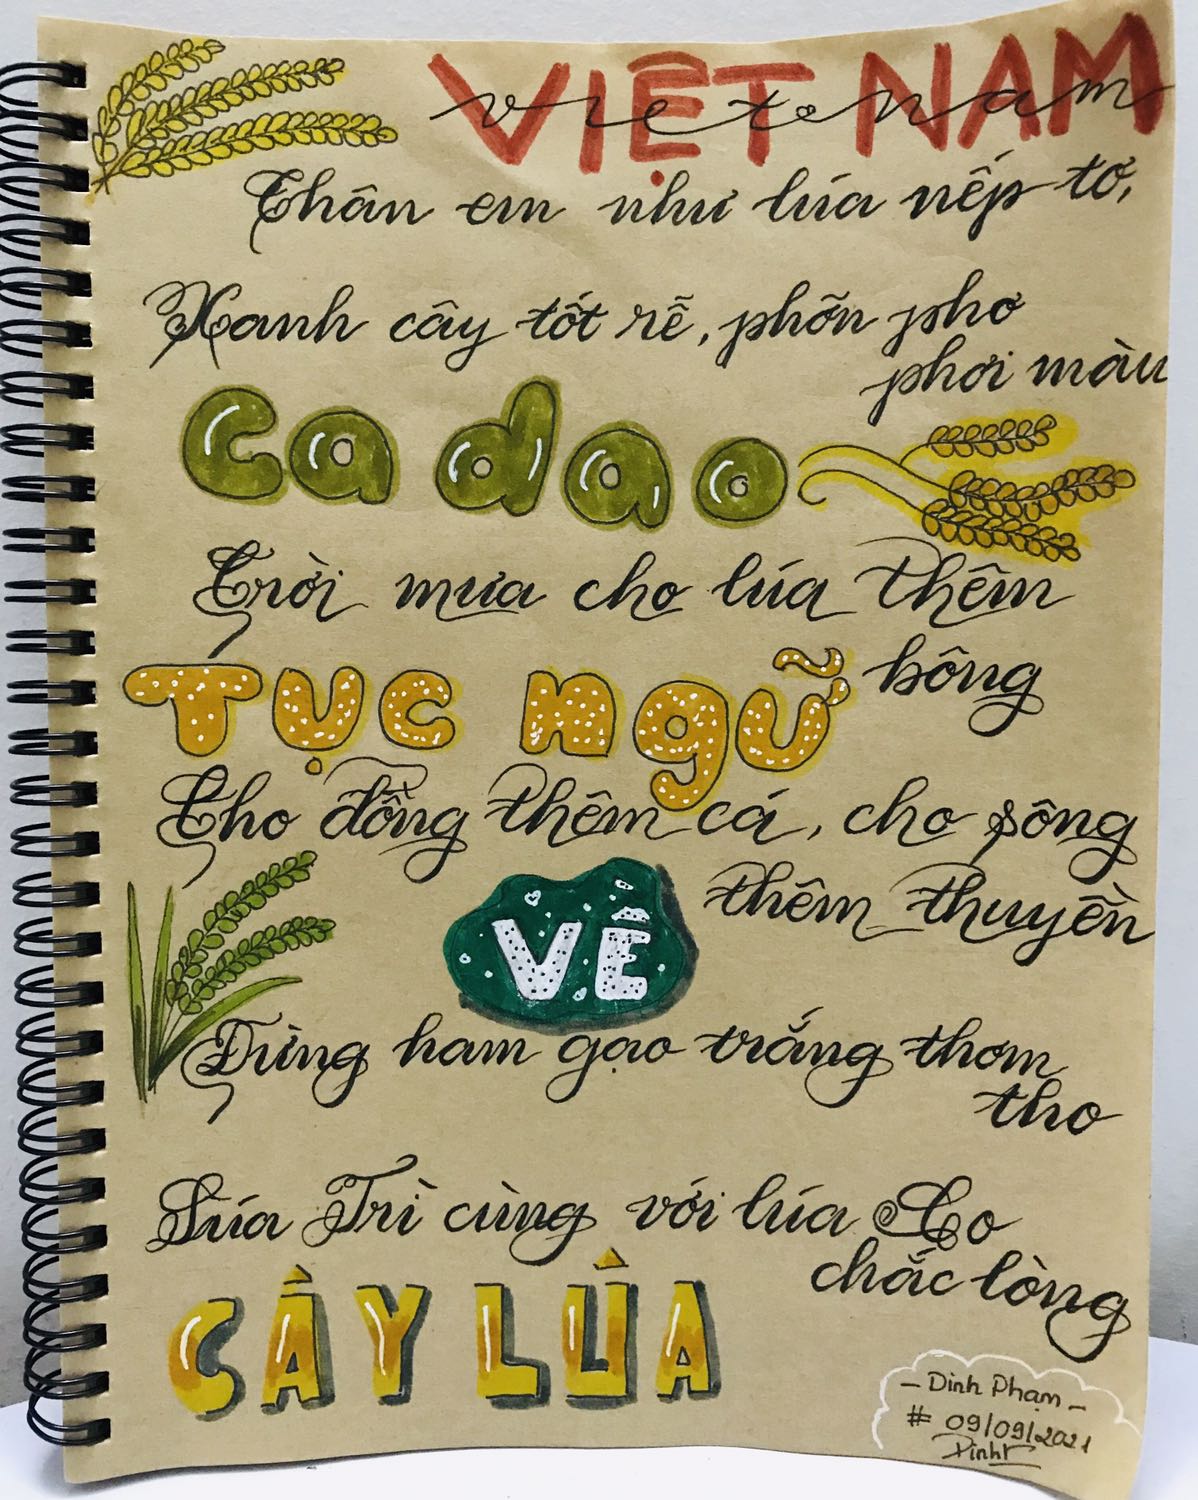 VIỆT NAM
vietnam
Thân em như lúa nếp tơ,
Xanh cây tốt rễ, phỡn phơ
phơi màu
Ca dao
Trời mưa cho lúa thêm
bông
Tục ngữ
Cho đồng thêm cá, cho sông
thêm thuyền
VỀ
Đừng ham gạo trắng thơm
tho
Lúa Trì cùng với lúa Co
chắc lòng
CÂY LÚA
- Dinh Phạm -
# 09/09/2021